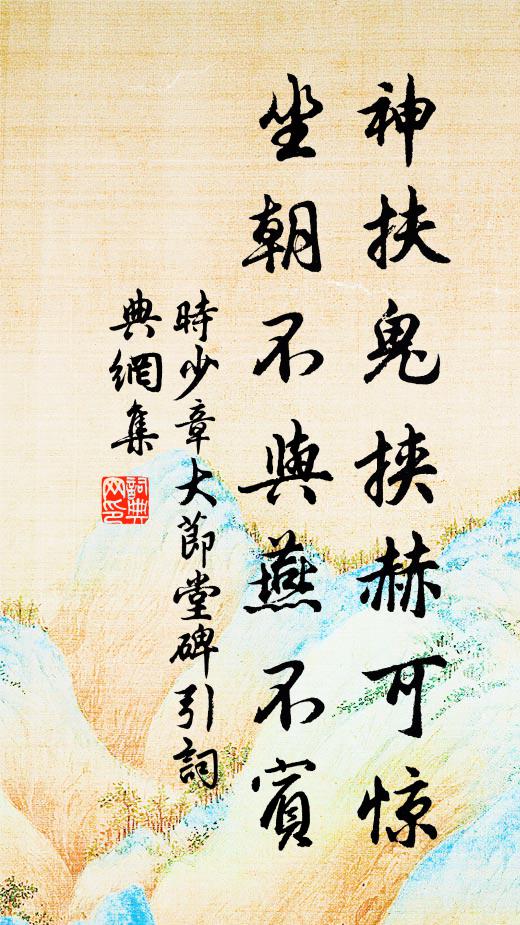 神扶鬼挟赫可惊
坐朝不與燕不賓
時少章大節堂碑引詞
典網集
詞典
网印